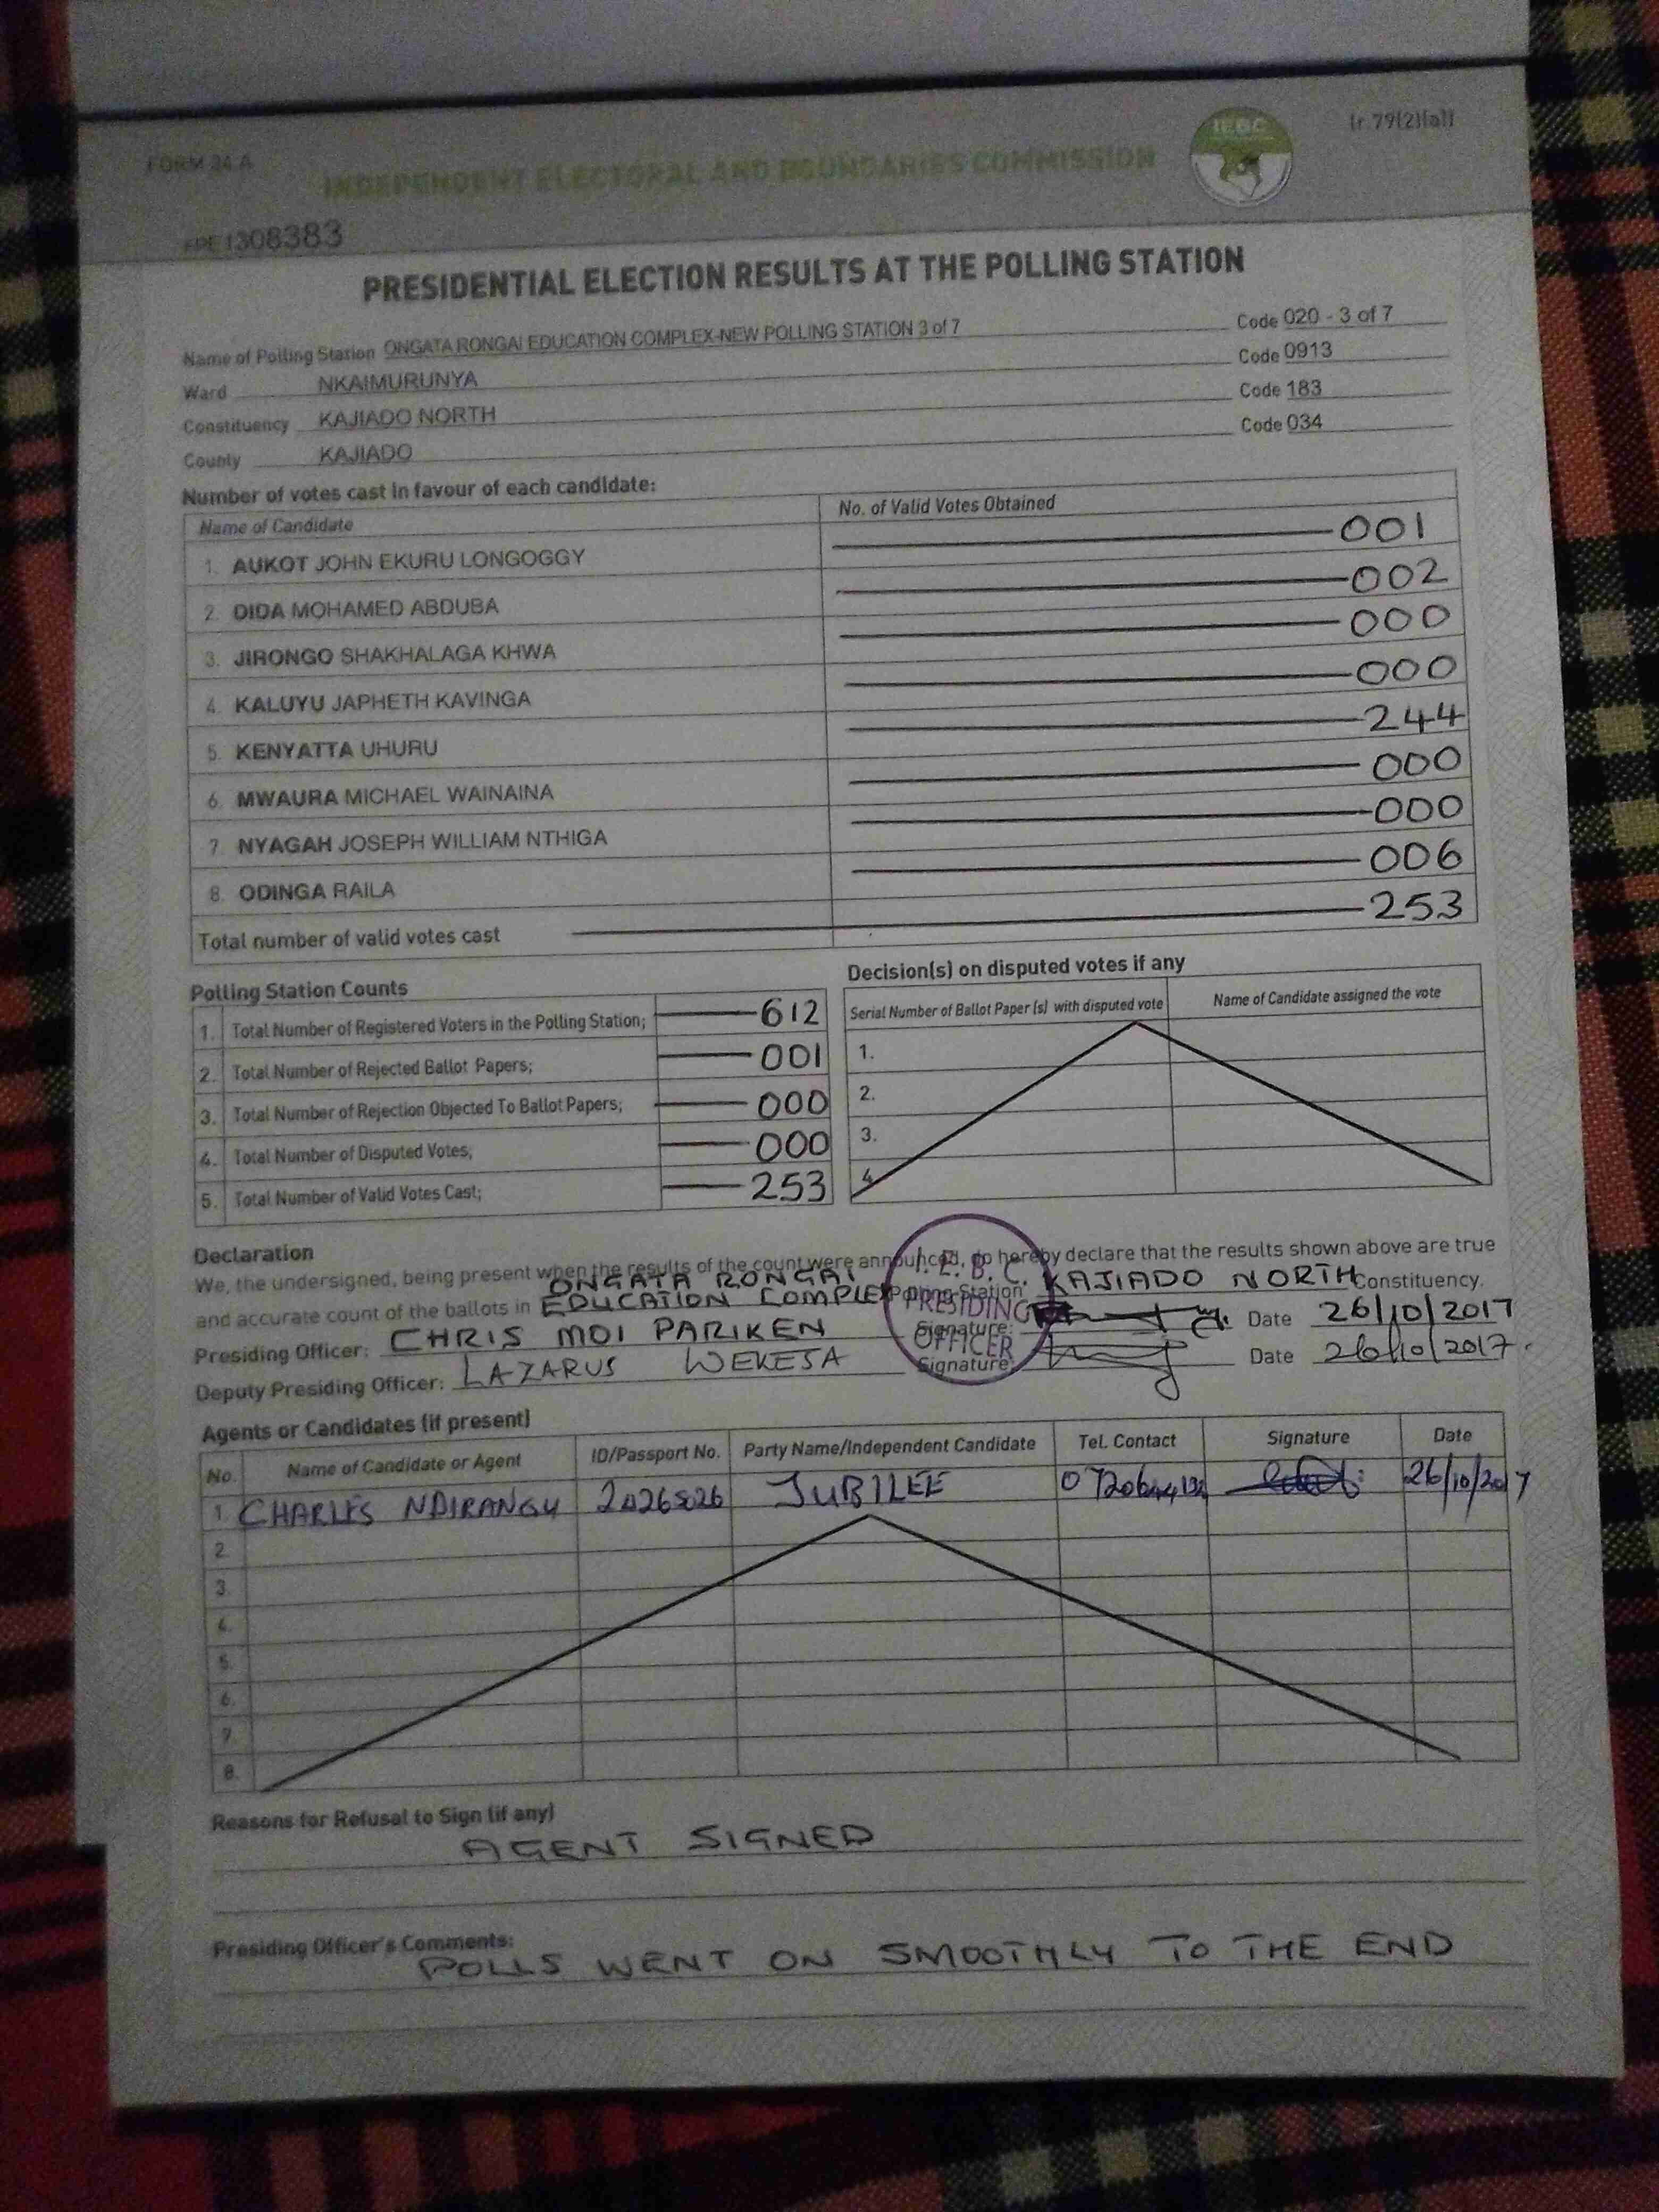 FORM 34 A
INDEPENDENT ELECTORAL AND BOUNDARIES COMMISSION
IEBC
(r. 79(2)(a))
1308383
PRESIDENTIAL ELECTION RESULTS AT THE POLLING STATION
Name of Polling Station ONGATA RONGAI EDUCATION COMPLEX-NEW POLLING STATION 3 of 7 Code 020 - 3 of 7
Ward NKAIMURUNYA Code 0913
Constituency KAJIADO NORTH Code 183
County KAJIADO Code 034
Number of votes cast in favour of each candidate:
Name of Candidate No. of Valid Votes Obtained
1. AUKOT JOHN EKURU LONGOGGY 001
2. DIDA MOHAMED ABDUBA 002
3. JIRONGO SHAKHALAGA KHWA 000
4. KALUYU JAPHETH KAVINGA 000
5. KENYATTA UHURU 244
6. MWAURA MICHAEL WAINAINA 000
7. NYAGAH JOSEPH WILLIAM NTHIGA 000
8. ODINGA RAILA 006
Total number of valid votes cast 253
Polling Station Counts
1. Total Number of Registered Voters in the Polling Station; 612
2. Total Number of Rejected Ballot Papers; 001
3. Total Number of Rejection Objected To Ballot Papers; 000
4. Total Number of Disputed Votes; 000
5. Total Number of Valid Votes Cast; 253
Decision(s) on disputed votes if any
Serial Number of Ballot Paper (s) with disputed vote Name of Candidate assigned the vote
1.
2.
3.
4.
Declaration
We, the undersigned, being present when the results of the count were announced, do hereby declare that the results shown above are true
and accurate count of the ballots in ONGATA RONGAI EDUCATION COMPLEX Polling Station KAJIADO NORTH Constituency.
I. E. B. C. PRESIDING OFFICER
Presiding Officer: CHRIS MOI PARIKEN Signature: Date 26/10/2017
Deputy Presiding Officer: LAZARUS WEKESA Signature: Date 26/10/2017.
Agents or Candidates (if present)
No. Name of Candidate or Agent ID/Passport No. Party Name/Independent Candidate Tel. Contact Signature Date
1 CHARLES NDIRANGU JUBILEE 26/10/2017
2.
3.
4.
5.
6.
7.
8.
Reasons for Refusal to Sign (if any)
AGENT SIGNED
Presiding Officer's Comments:
POLLS WENT ON SMOOTHLY TO THE END